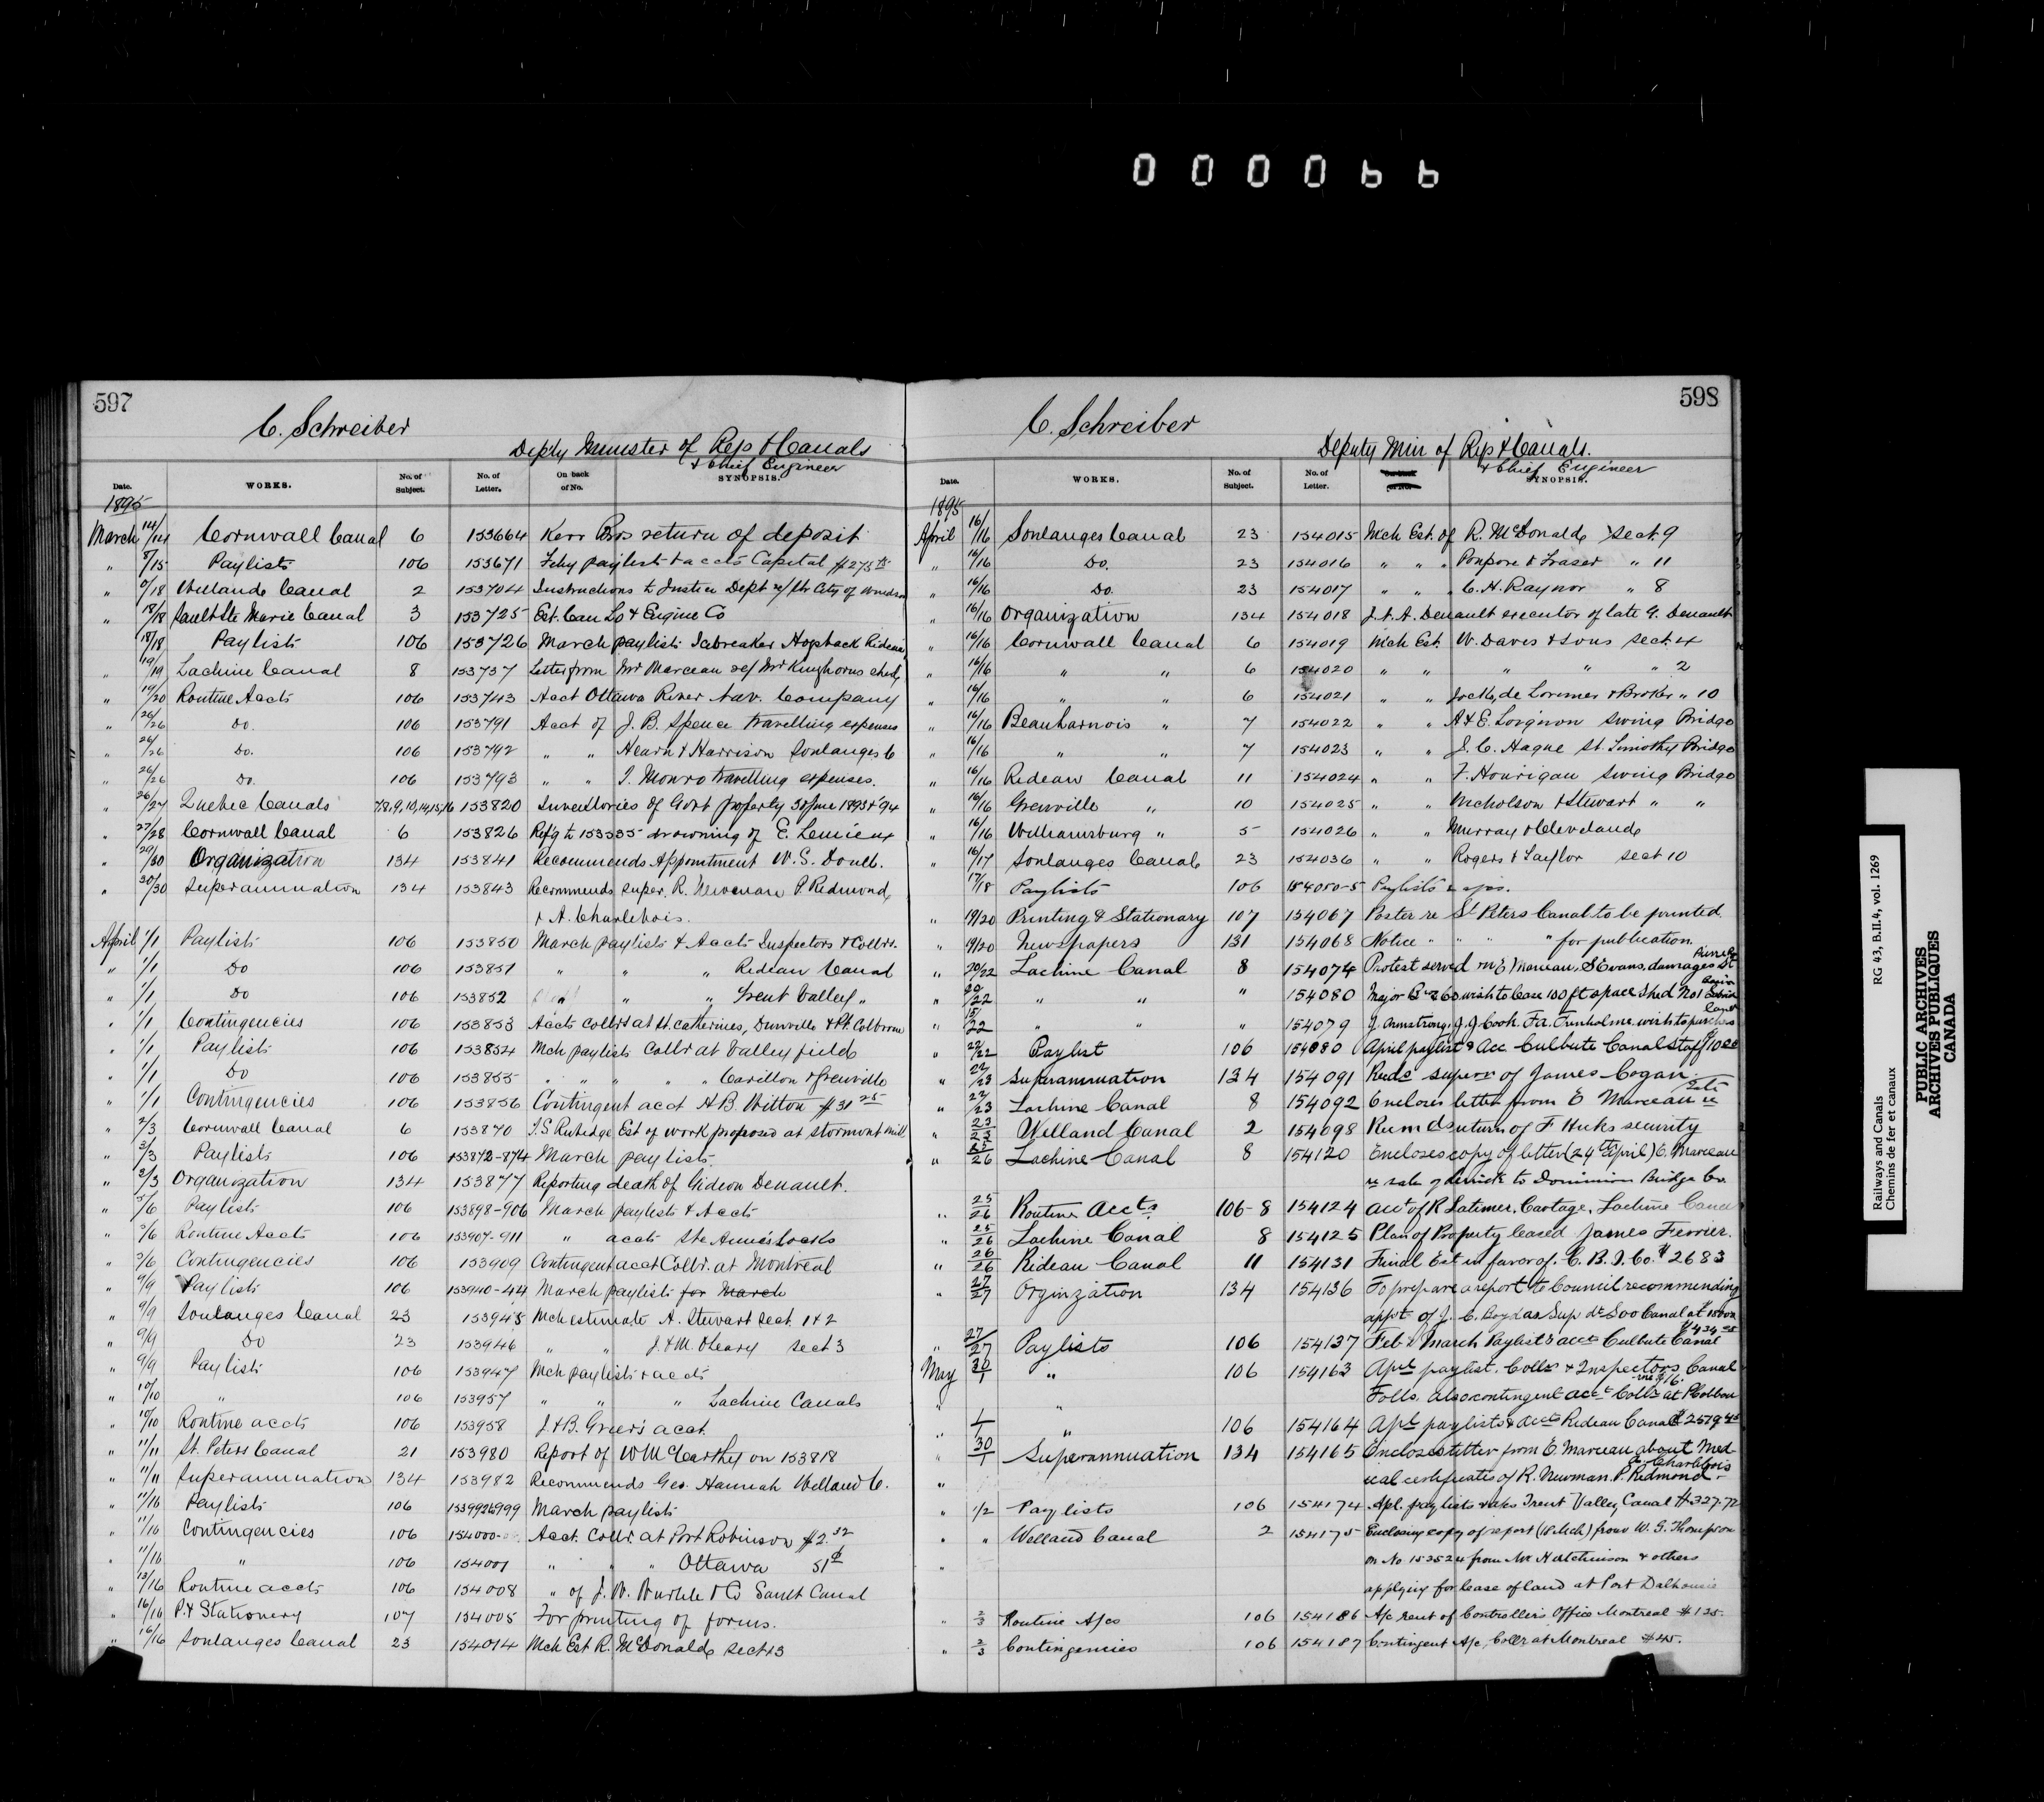 000066
597
C. Schreiber
Depty Minister of Rys & Canals
& Chief Engineer
Date. WORKS. No. of Subject. No. of Letter. On back of No. SYNOPSIS.
1895
March 14/14 Cornwall Canal 6 153664 Kerr Bros return of deposit
" 8/15 Paylists 106 153671 Feby paylists & accts Capital
" 18 Welland Canal 2 153704 Instructions to Justice Dept City of Windsor
" 18/18 Sault Ste Marie Canal 3 153725 Est. Can Lo & Engine Co
" 18/18 Paylists 106 153726 March paylists Icebreaker Hogsback Rideau
" 19/19 Lachine Canal 8 153737 Letter from Mr Marceau Mr Kinghorns
" 19/20 Routine Accts 106 153743 Acct Ottawa River Nav. Company
" 26/26 Do. 106 153791 Acct of J. B. Spence travelling expenses
" 26/26 Do. 106 153792 " " Hearn & Harrison Soulanges C
" 26/26 Do. 106 153793 " " T. Monro travelling expenses.
" 26/27 Quebec Canals 7,8,9,10,14,15,16 153820 Inventories of Govt property 30 June 1893 & 94
" 27/28 Cornwall Canal 6 153826 Refg to 153535 drowning of E. Lemieux
" 29/30 Organization 134 153841 Recommends Appointment W. S.
" 30/30 Superannuation 134 153843 Recommends super. R. Newman P Redmond,
& A. Charlebois.
April 1/1 Paylists 106 153850 March paylists & Accts Inspectors & Collrs.
" 1/1 Do 106 153851 " " " Rideau Canal
" 1/1 Do 106 153852 " " " Trent Valley "
" 1/1 Contingencies 106 153853 Accts Collrs at St. Catherines, Dunville & Pt. Colborne
" 1/1 Paylists 106 153854 Mch paylists Collr at Valleyfield
" 1/1 Do 106 153855 " " " " Carillon & Grenville
" 1/1 Contingencies 106 153856 Contingent acct H. B. Witton $31 25
" 2/3 Cornwall Canal 6 153870 T. S Rubidge Est of work proposed at Stormont Mill
" 3/3 Paylists 106 153872-874 March paylists.
" 2/3 Organization 134 153877 Reporting death of Gideon Denault.
" 5/6 Paylists 106 153898-906 March paylists & Accts
" 5/6 Routine Accts 106 153907-911 " accts Ste Anne's Locks
" 5/6 Contingencies 106 153909 Contingent acct Collr. at Montreal
" 9/9 Paylists 106 153940-44 March paylists for March
" 9/9 Soulanges Canal 23 153945 Mch estimate A. Stewart Sect. 1 & 2
" 9/9 Do 23 153946 " " J. & M. O'Leary Sect 3
" 9/9 Paylists 106 153947 Mch paylists & accts
" 10/10 " 106 153957 " " " Lachine Canals
" 10/10 Routine accts 106 153958 J. & B. Grier's acct.
" 11/11 St. Peters Canal 21 153980 Report of W McCarthy on 153818
" 11/11 Superannuation 134 153982 Recommends Geo. Hannah Welland C.
" 11/16 Paylists 106 153992 999 March paylists
" 11/16 Contingencies 106 154000 Acct. Collr. at Port Robinson $2.32
" 11/16 " 106 154001 " " " Ottawa
" 13/16 Routine accts 106 154008 " of J. W. & Co Sault Canal
" 16/16 P. & Stationery 107 154005 For printing of forms.
" 16/16 Soulanges Canal 23 154014 Mch Est R. McDonald, sect 13
598
C. Schreiber
Deputy Min of Rys & Canals.
& Chief Engineer
Date. WORKS. No. of Subject. No. of Letter. SYNOPSIS.
1895
April 16/16 Soulanges Canal 23 154015 Mch Est. of R. McDonald, Sect. 9
" 16/16 Do. 23 154016 " " " Poupore & Fraser " 11
" 16/16 Do. 23 154017 " " " C. H. Raynor " 8
" 16/16 Organization 134 154018 J. t. A. Denault executor of late G. Denault
" 16/16 Cornwall Canal 6 154019 Mch Est. W. Davis & Sons Sect. 4
" 16/16 " " 6 154020 " " " " " 2
" 16/16 " " 6 154021 " " Jocks, de Lorimer & Bro " 10
" 16/16 Beauharnois " 7 154022 " " A & E. Loignon Swing Bridge
" 16/16 " " 7 154023 " " J. C. Hague St. Timothy Bridge
" 16/16 Rideau Canal 11 154024 " " F. Hourigan Swing Bridge
" 16/16 Grenville " 10 154025 " " Nicholson & Stewart " "
" 16/16 Williamsburg " 5 154026 " " Murray & Cleveland
" 16/17 Soulanges Canal 23 154036 " " Rogers & Taylor Sect 10
17/18 Paylists 106 154050-5 Paylists
" 19/20 Printing & Stationary 107 154067 Poster re St Peters Canal to be printed.
" 19/20 Newspapers 131 154068 Notice " " " " for publication.
" 20/22 Lachine Canal 8 154074 Protest served on E Marceau, S Evans, damages St
" 20/22 " " " 154080 Major & Co wish to lease 100 ft space Shed No 1
" 15/22 " " " 154079 J. Armstrong, J. J Cook. Trenholme, wish to purchas
" 22/22 Paylist 106 154080 April paylist & Acc. Culbute Canal staff
" 22/23 Superannuation 134 154091 Super of James Cogan.
" 22/23 Lachine Canal 8 154092 Encloses letter from E Marceau re
" 23/23 Welland Canal 2 154098 return of F Hicks security
" 25/26 Lachine Canal 8 154120 Encloses copy of letter (24th April) E. Marceau
re sale of derrick to Dominion Bridge Co.
" 25/26 Routine Accts 106-8 154124 acct of R Latimer, Cartage, Lachine Canal
" 25/26 Lachine Canal 8 154125 Plan of Property leased James Ferrier.
" 26/26 Rideau Canal 11 154131 Final Est in favor of C. B. I. Co. $2683
" 27/27 Orginzation 134 154136 To prepare a report to Council recommending
appt of J. C. Boyd as Sup dt Soo Canal at
27/27 Paylists 106 154137 Feb & March Paylists & accts Culbute Canal
May 30/1 " 106 154163 Apl paylist. Collr & Inspectors Canal
Tolls. also contingent acct Collr at P Colbon
" 1/1 " 106 154164 Apl paylists & accts Rideau Canal
" 30/1 Superannuation 134 154165 Encloses letter from E. Marceau about Med
ical certificates of R. Newman. P. Redmond & Charlebois
" 1/2 Paylists 106 154174 Apl. paylists Trent Valley Canal $327.72
" " Welland Canal 2 154175 Enclosing copy of report (18 Mch) from W. G. Thompson
on No 153524 from Mr Hutchinson & others
applying for lease of land at Port Dalhousie
" 2/3 Routine A/cs 106 154186 A/c rent of Controller's Office Montreal $125.
" 2/3 Contingencies 106 154187 Contingent A/c Collr at Montreal $45.
Railways and Canals RG 43, B.II.4, vol. 1269
Chemins de fer et canaux
PUBLIC ARCHIVES
ARCHIVES PUBLIQUES
CANADA